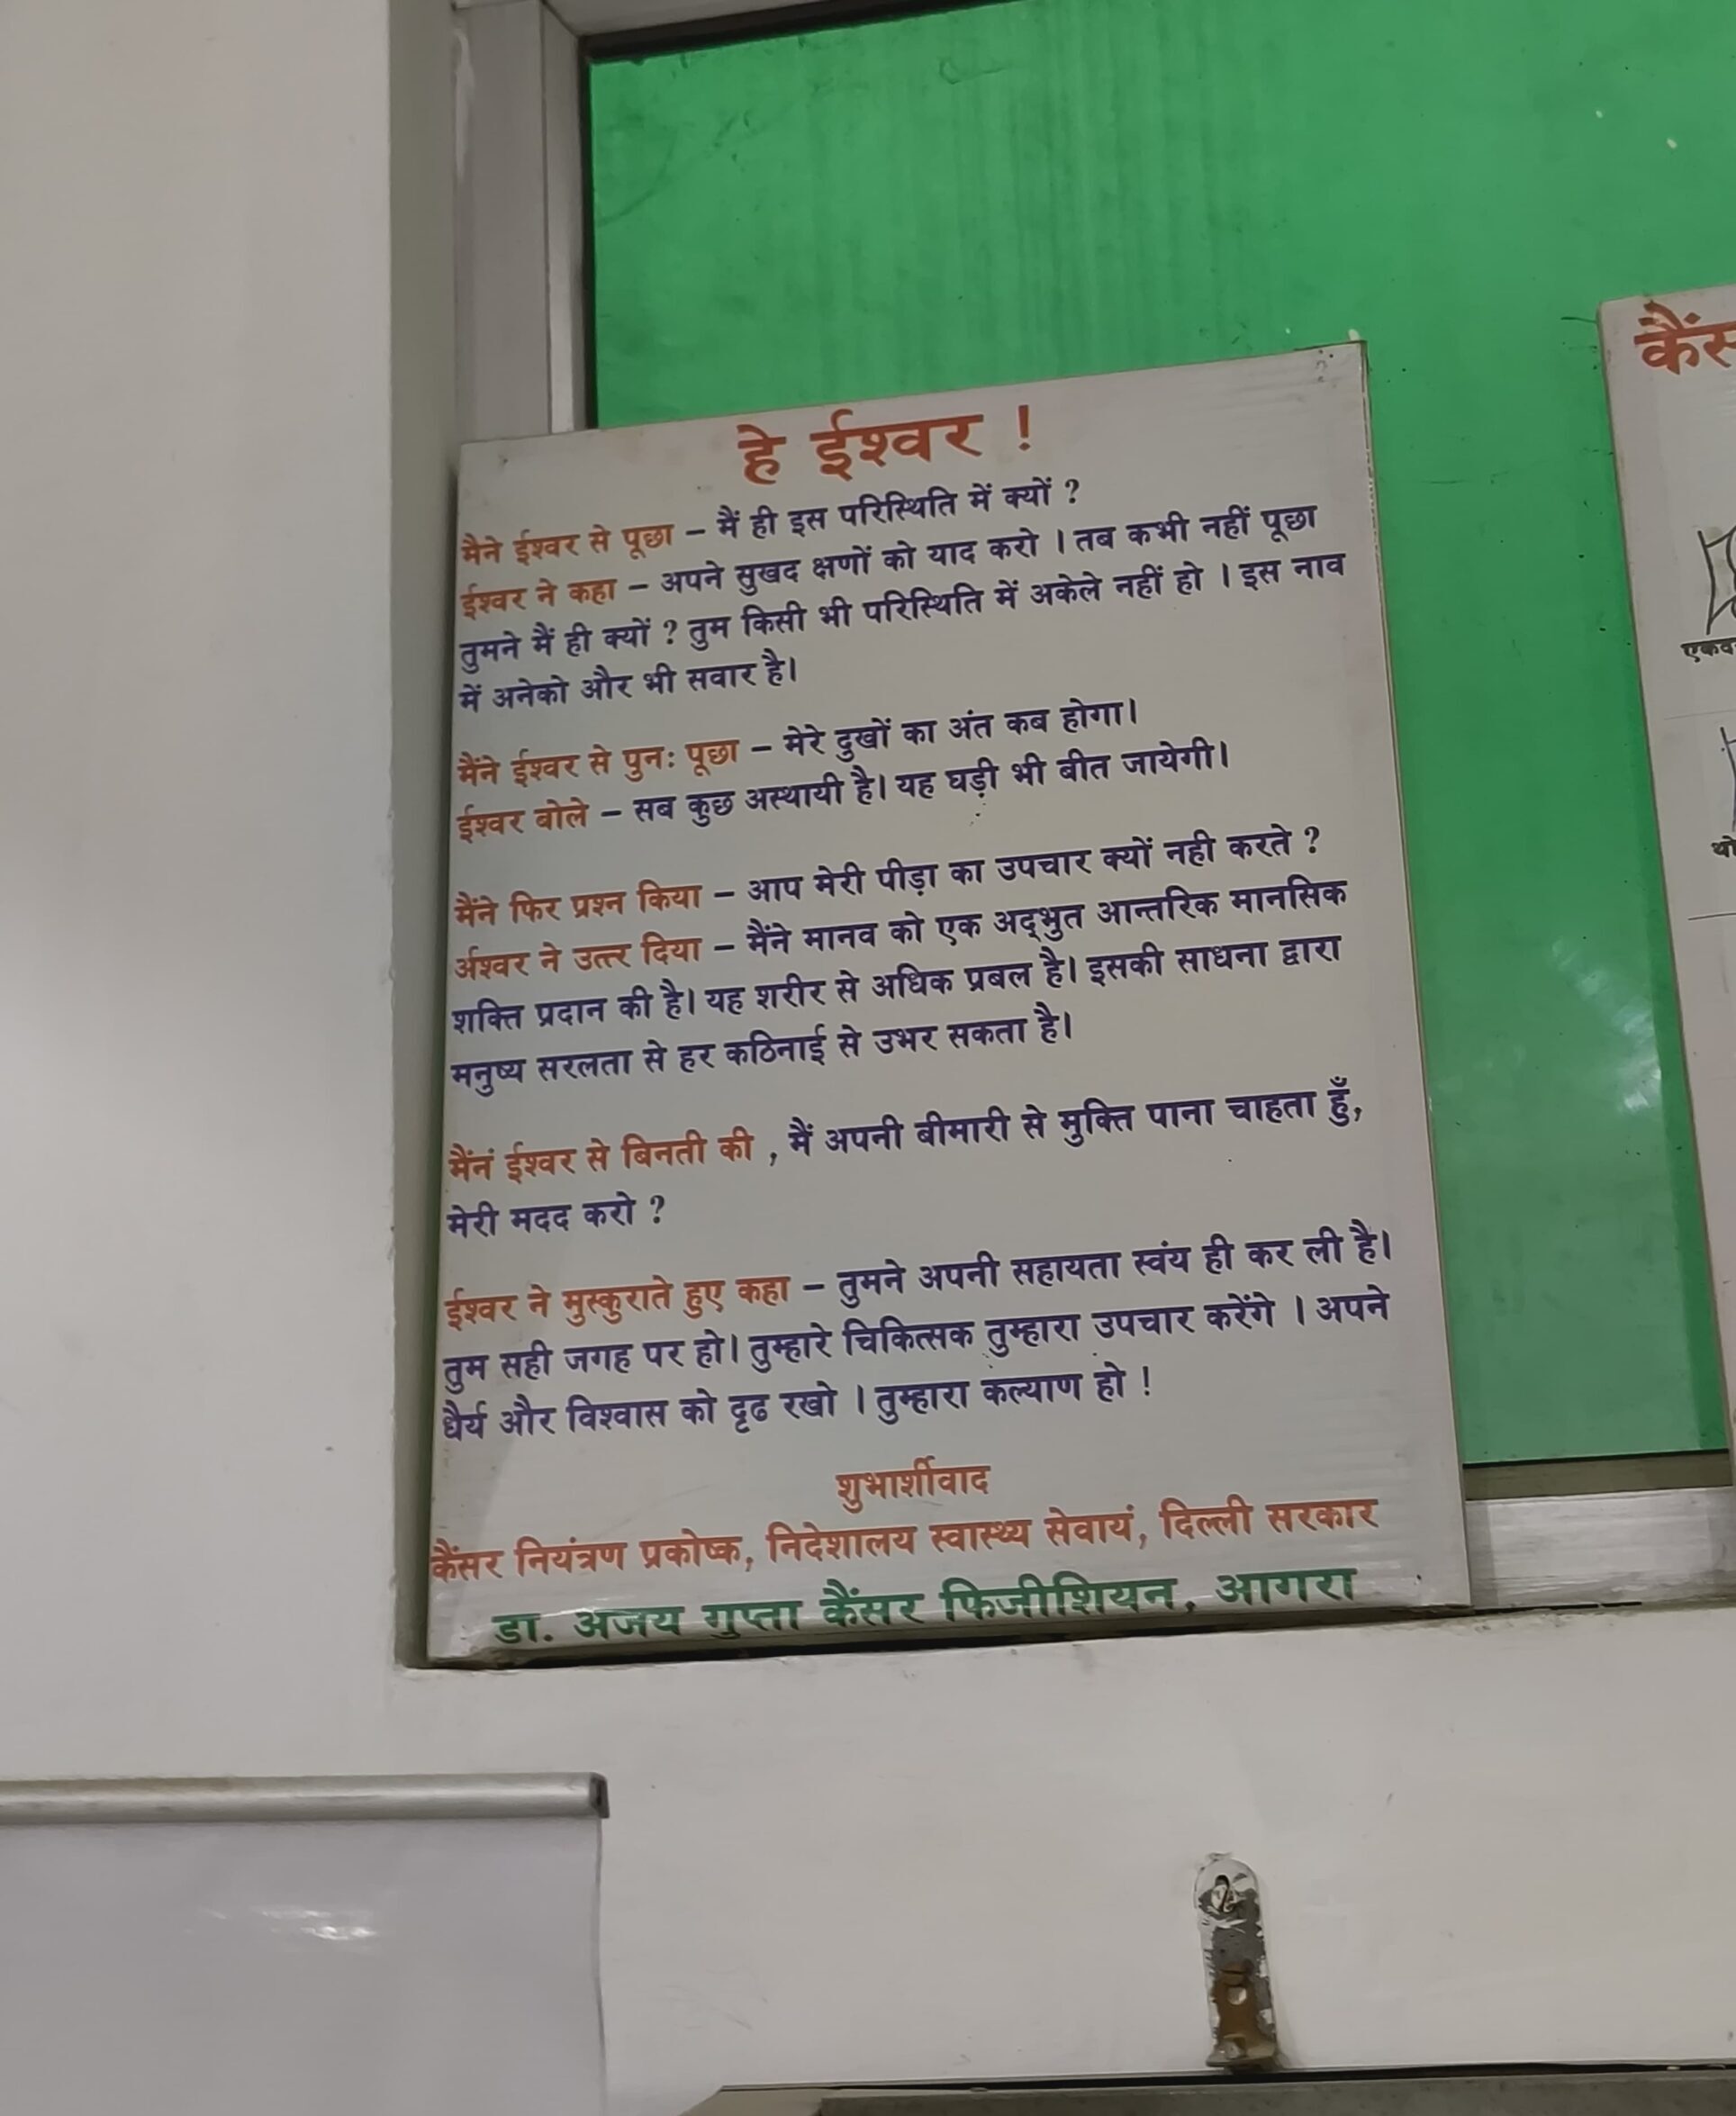 हे ईश्वर !
मैने ईश्वर से पूछा – मैं ही इस परिस्थिति में क्यों ?
ईश्वर ने कहा – अपने सुखद क्षणों को याद करो । तब कभी नहीं पूछा
तुमने मैं ही क्यों ? तुम किसी भी परिस्थिति में अकेले नहीं हो । इस नाव
में अनेको और भी सवार है।
मैंने ईश्वर से पुनः पूछा – मेरे दुखों का अंत कब होगा।
ईश्वर बोले – सब कुछ अस्थायी है। यह घड़ी भी बीत जायेगी।
मैंने फिर प्रश्न किया – आप मेरी पीड़ा का उपचार क्यों नही करते ?
र्अश्वर ने उत्त्र दिया – मैंने मानव को एक अद्भुत आन्तरिक मानसिक
शक्ति प्रदान की है। यह शरीर से अधिक प्रबल है। इसकी साधना द्वारा
मनुष्य सरलता से हर कठिनाई से उभर सकता है।
मैंनं ईश्वर से बिनती की , मैं अपनी बीमारी से मुक्ति पाना चाहता हुँ,
मेरी मदद करो ?
ईश्वर ने मुस्कुराते हुए कहा – तुमने अपनी सहायता स्वंय ही कर ली है।
तुम सही जगह पर हो। तुम्हारे चिकित्सक तुम्हारा उपचार करेंगे । अपने
धैर्य और विश्वास को दृढ रखो । तुम्हारा कल्याण हो !
शुभार्शीवाद
कैंसर नियंत्रण प्रकोष्क, निदेशालय स्वास्थ्य सेवायं, दिल्ली सरकार
डा. अजय गुप्ता कैंसर फिजीशियन, आगरा